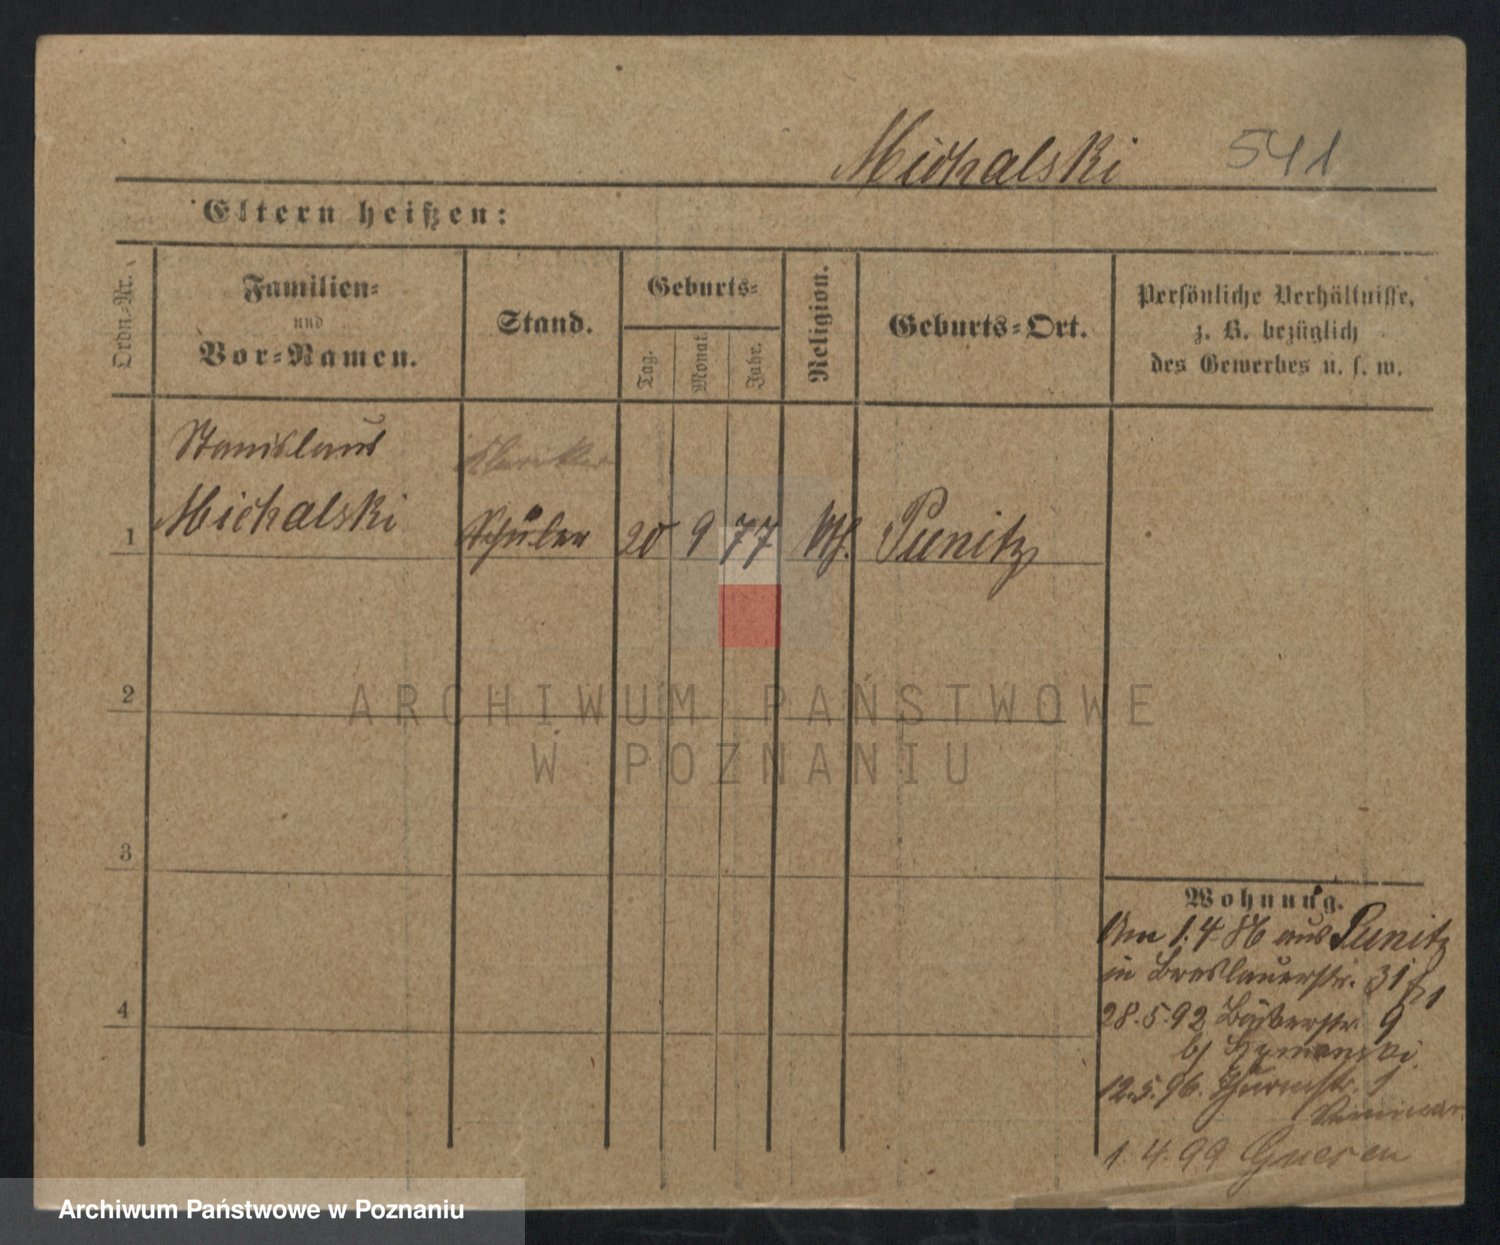 Michalski 541
Eltern heißen:
Ordn.-Nr.
Familien-
und
Vor-Namen.
Stand.
Geburts-
Tag.
Monat
Jahr.
Religion.
Geburts-Ort.
Persönliche Verhältnisse,
z. B. bezüglich
des Gewerbes u. s. w.
Stanislaus Kleriker
1 Michalski Schüler 20 9 77 kth. Punitz
2
ARCHIWUM PAŃSTWOWE
W POZNANIU
3
4
Wohnung.
Am 1.4.86 aus Punitz
in Breslauerstr. 31
28.5.92 Bäckerstr. 9
b/ Szymanski
12.5.96. Thurmstr. 1
Seminar
1.4.99 Gnesen
Archiwum Państwowe w Poznaniu